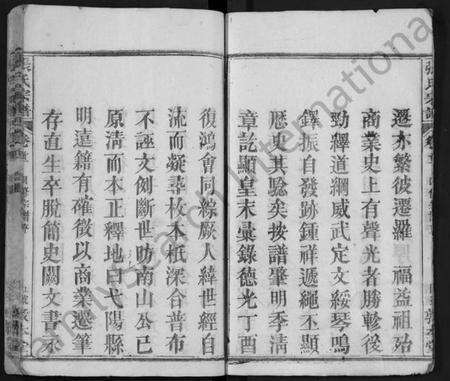 遷亦繁彼遷羅 福益祖始
商業史上有聲光者勝軫後
勁釋道綱威武定文綏琴鳴
鐸振自發跡鍾祥遞繩不顯
歷史其駿矣按譜肇明季清
章訖顯皇末彙錄德光丁酉
復鴻會同綜厥人緯世經自
流而凝尋枚木柢深谷普布
不誣文倒斷世昉南山公已
原清而本正釋地曰弋陽縣
明遠籍有確徵以商業選筆
存直生卒脫簡史闕文書示
張氏宗譜